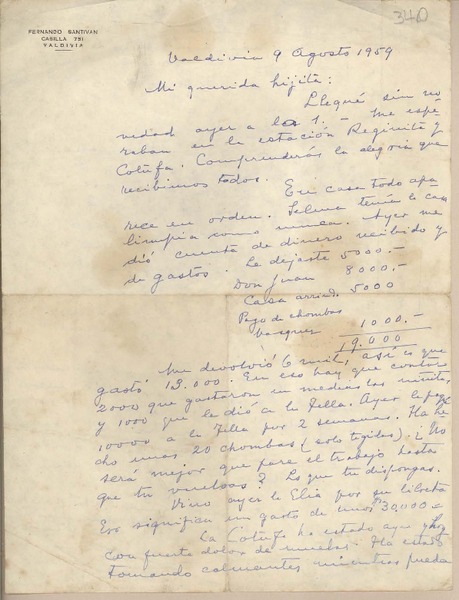 340
FERNANDO SANTIVAN
CASILLA 751
VALDIVIA
Valdivia 9 Agosto 1959
Mi querida hijita:
Llegué sin no
vedad ayer a la 1. - Me espe
raban en la estación Reginita y
Cotufa. Comprenderás la alegría que
recibimos todos.
En casa todo apa
rece en orden. Selma tenía la casa
limpia como nunca. Ayer me
dió cuenta de dinero recibido y
de gastos. Le dejaste 5000.-
Don Juan 8000.-
Casa arriend. 5000
Pago de chombas
Vasquez 1000.-
19.000
Me devolvió 6 mil, así es que
gastó 13.000. En eso hay que contar
2000 que gastaron en medias las niñitas
y 1000 que le dió a la Tella. Ayer le pagué
10000 a la Tella por 2 semanas. Ha he
cho unas 20 chombas (solo tejidas). ¿No
será mejor que pare el trabajo hasta
que tu vuelvas? Lo que tu dispongas.
Vino ayer la Elia por su libreta
Eso significa un gasto de unos $30.000=
La Cotufa ha estado ayer y hoy
con fuerte dolor de muelas. Ha estado
tomando calmantes mientras pueda